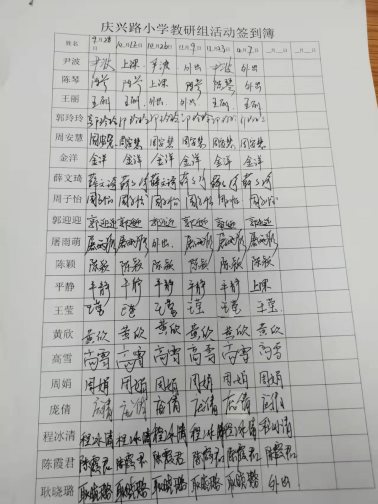 庆兴路小学教研组活动签到簿
姓名 9月28日 10.12日 10.26日 11.9日 11.23日 12.7日 __月__日 __月__日
尹波 尹波 上课 尹波 外出 尹波 外出
陈琴 陈琴 外出
王丽 王丽 王丽 外出 王丽 王丽 王丽
郭玲玲
周安慧 周安慧 周安慧 周安慧 周安慧 周安慧 周安慧
金洋 金洋 金洋 金洋 金洋 金洋 金洋
薛文琦 薛文琦 薛文琦 薛文琦 薛文琦 薛文琦
周子怡 周子怡 周子怡 周子怡 周子怡 周子怡 周子怡
郭迎迎 郭迎迎 郭迎迎 郭迎迎 郭迎迎 郭迎迎 郭迎迎
屠雨萌 屠雨萌 屠雨萌 外出 屠雨萌 屠雨萌 屠雨萌
陈颖 陈颖 陈颖 陈颖 陈颖 陈颖 陈颖
平静 平静 平静 平静 平静 平静 上课
王莹 王莹 王莹 王莹 王莹 王莹 王莹
黄欣 黄欣 黄欣 黄欣 黄欣 黄欣 黄欣
高雪 高雪 高雪 高雪 高雪 高雪 高雪
周娟 周娟 周娟 周娟 周娟 周娟 周娟
庞倩 庞倩 庞倩 庞倩 庞倩 庞倩 庞倩
程冰清 程冰清 程冰清 程冰清 程冰清 程冰清 程冰清
陈霞君 陈霞君 陈霞君 陈霞君 陈霞君 陈霞君 陈霞君
耿晓璐 耿晓璐 耿晓璐 耿晓璐 耿晓璐 耿晓璐 外出